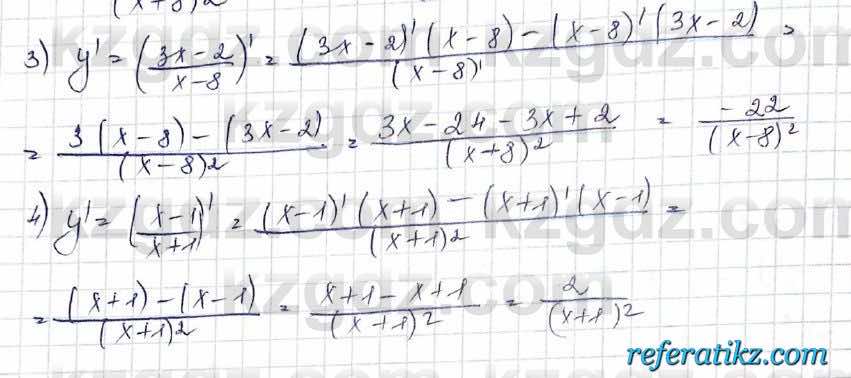 (x+8)2
3) y' = (3x-2 / x-8)' = (3x-2)'(x-8)-(x-8)'(3x-2) / (x-8)' =
= 3(x-8)-(3x-2) / (x-8)2 = 3x-24-3x+2 / (x+8)² = -22 / (x-8)²
4) y' = (x-1 / x+1)' = (x-1)'(x+1)-(x+1)'(x-1) / (x+1)2 =
= (x+1)-(x-1) / (x+1)2 = x+1-x+1 / (x+1)² = 2 / (x+1)²
referatikz.com